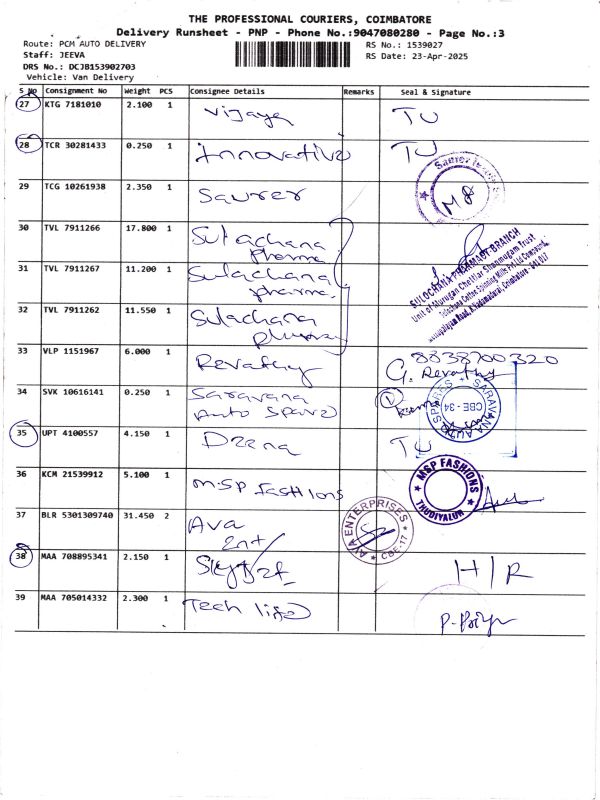 THE PROFESSIONAL COURIERS, COIMBATORE
Delivery Runsheet - PNP - Phone No.:9047080280 - Page No.:3
Route: PCM AUTO DELIVERY RS No.: 1539027
Staff: JEEVA RS Date: 23-Apr-2025
DRS No.: DCJB153902703
Vehicle: Van Delivery
S No Consignment No Weight PCS Consignee Details Remarks Seal & Signature
27 KTG 7181010 2.100 1 Vijaya TU
28 TCR 30281433 0.250 1 Innovative TU
29 TCG 10261938 2.350 1 Saurer
Saurer
30 TVL 7911266 17.800 1 Sulachana
pharma
31 TVL 7911267 11.200 1 Sulachana
pharma.
32 TVL 7911262 11.550 1 Sulachana
pharma
SULOCHANA PHARMACY-BRANCH
Unit of Murugan Chettiar Shanmugam Trust
Sulochana Cotton Spinning Mills Pvt Ltd Compound,
33 VLP 1151967 6.000 1 Revathy 8838700320
G. Revathy
34 SVK 10616141 0.250 1 Saravana
Auto Spares
SARAVANA AUTO SPARES
CBE-34
35 UPT 4100557 4.150 1 Deena TU
36 KCM 21539912 5.100 1 M.SP fashions
MSP FASHIONS
THUDIYALUR
37 BLR 5301309740 31.450 2 Ava
Ent/
AVA ENTERPRISES
CBE-17
38 MAA 708895341 2.150 1 H/R
39 MAA 705014332 2.300 1 Tech life
P-Priya